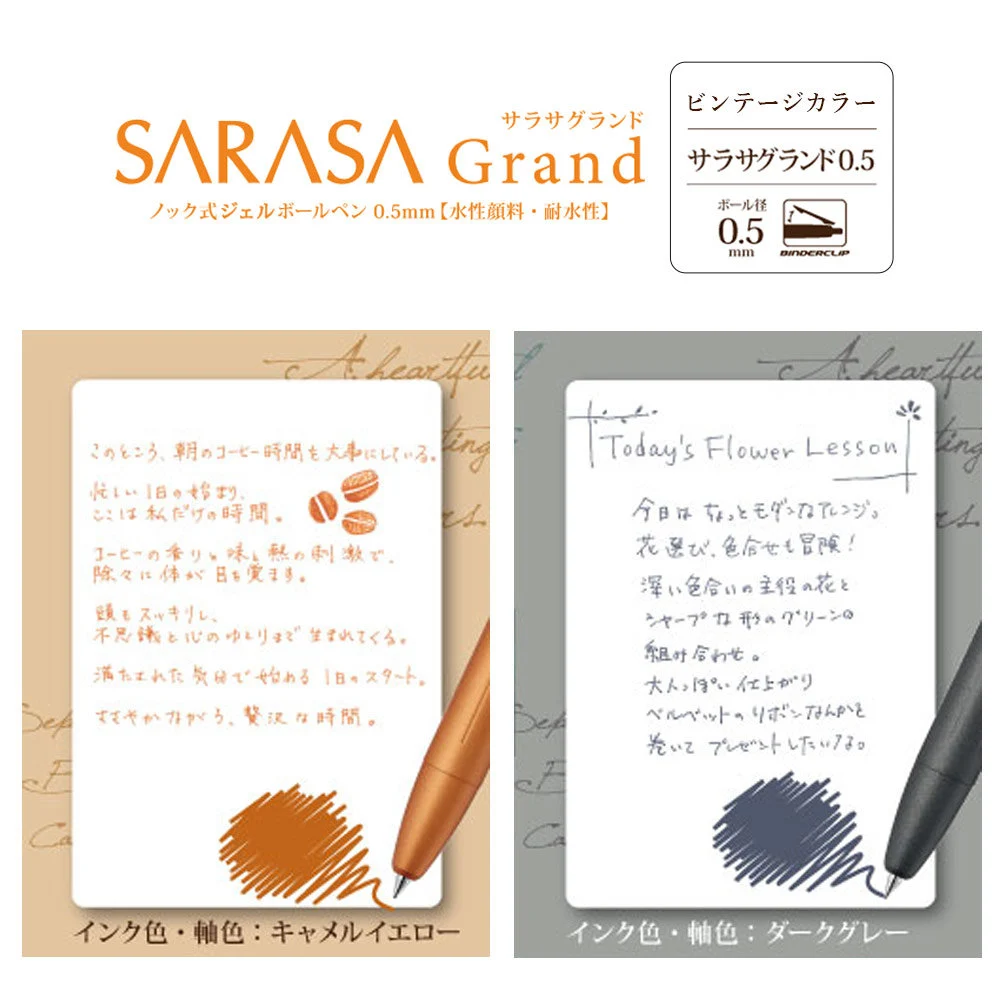 サラサグランド
SARASA Grand
ノック式ジェルボールペン 0.5mm【水性顔料・耐水性】
ビンテージカラー
サラサグランド0.5
ボール径
0.5
mm
BINDERCLIP
A heartful
ting
rs
Sep
E
Ca
このところ、朝のコーヒー時間を大事にしている。
忙しい1日の始まり、
ここは私だけの時間。
コーヒーの香りと味と熱の刺激で、
徐々に体が目を覚ます。
頭もスッキリし、
不思議と心のゆとりまで生まれてくる。
満たされた気分で始める1日のスタート。
ささやかながら、贅沢な時間。
インク色・軸色：キャメルイエロー
A heartful
ting
rs
Sep
E
Ca
Today's Flower Lesson
今日はちょっとモダンなアレンジ。
花選び、色合せも冒険！
深い色合いの主役の花と
シャープな形のグリーンの
組み合わせ。
大人っぽい仕上がり
ベルベットのリボンなんかを
巻いてプレゼントしたいな。
インク色・軸色：ダークグレー